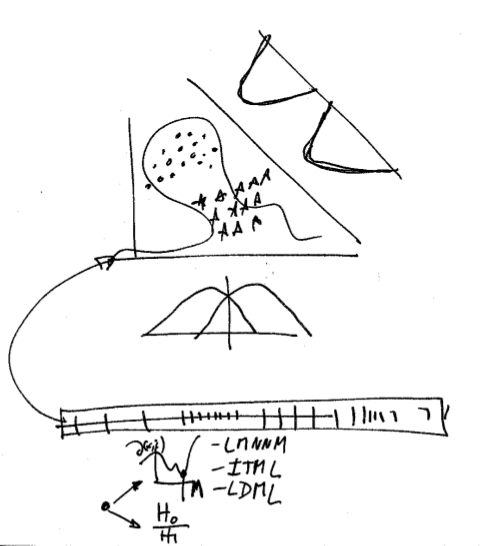 -LMNNM
-ITML
-LDML
M
H₀
H₁